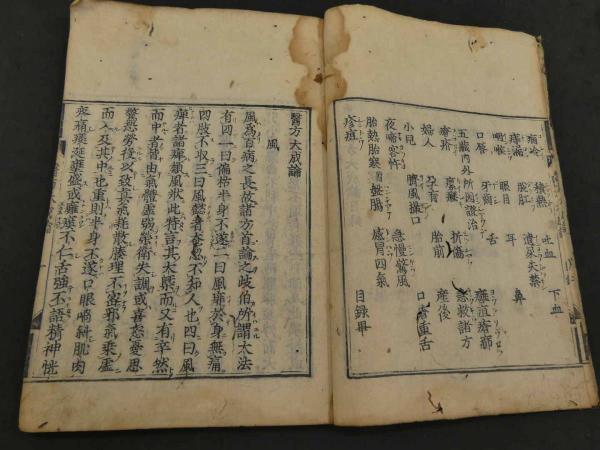 痼冷 積熱 吐血 下血
痔漏 脱肛 遺尿失禁
咽喉 眼目 耳 鼻
口唇 牙齒 舌
五臟內外所因證治 癰疽瘡癤
瘡疥 瘰癧 折傷 急救諸方
婦人 孕育 胎前 產後
小兒 臍風撮口 口瘡重舌
夜啼客忤 急慢驚風
胎熱胎寒 盤腸 感冒四氣
疹痘 目録畢
醫方大成論
風
風爲百病之長故諸方首論之歧伯所謂大法
有四一曰偏枯半身不遂二曰風痱於身無痛
四肢不収三曰風懿者奄忽不知人也四曰風
痺者諸痺類風狀此特言其大槩而又有卒然
而中者皆由氣體虛弱榮衛失調或喜怒憂思
驚恐勞役以致眞氣耗散腠理不密邪氣乗虛
而入及其中也重則半身不遂口眼喎斜肌肉
疼痛痰涎壅盛或癱瘓不仁舌強不語精神恍